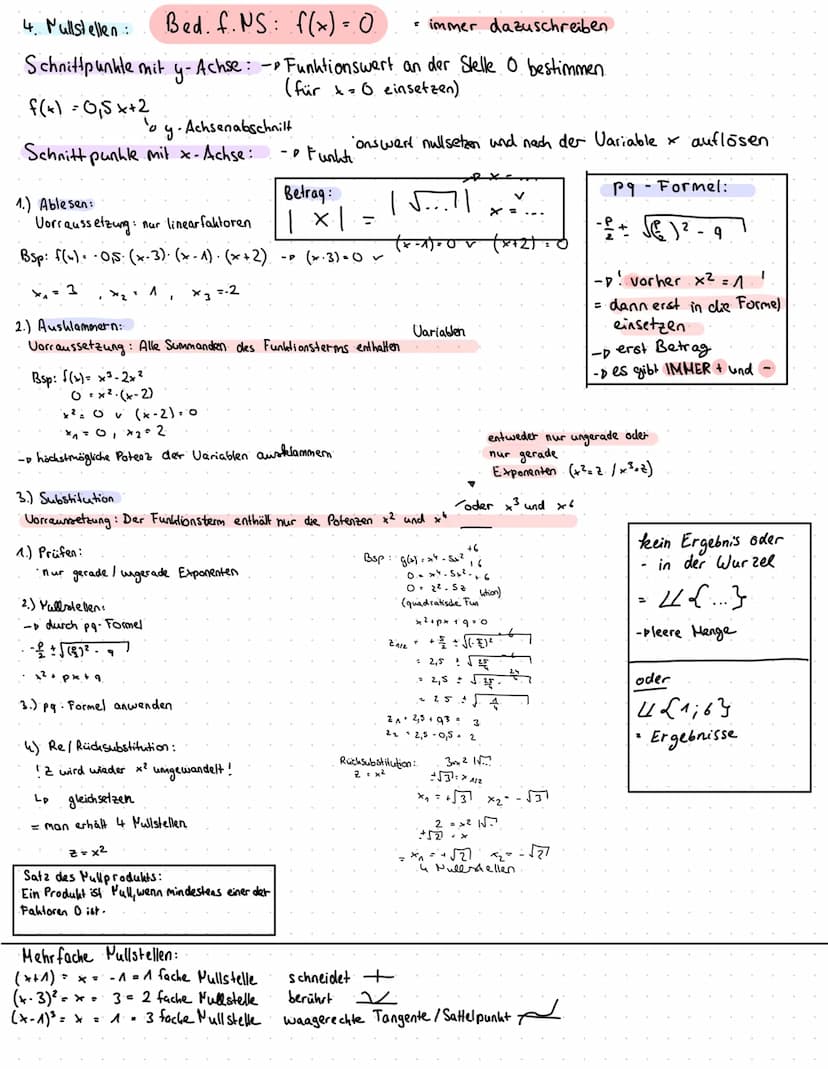 4. Nullstellen: Bed. f. NS: f(x) = 0 = immer dazuschreiben
Schnittpunkte mit y-Achse: → Funktionswert an der Stelle 0 bestimmen
(für x = 0 einsetzen)
f(x) = 0,5x+2
↳ y-Achsenabschnitt
Schnittpunkte mit x-Achse: → Funktionswert nullsetzen und nach der Variable x auflösen
1.) Ablesen:
Vorraussetzung: nur linearfaktoren
Bsp: f(x) = -0,5 · (x-3) · (x-1) · (x+2) → (x-3)=0 v (x-1)=0 v (x+2)=0
x₁ = 3 , x₂ = 1 , x₃ = -2
Betrag:
|x| = |√...| → x = ...
v
x = ...
pq - Formel:
-p/2 ± √(p/2)² - q
→ ! vorher x² = 1 !
= dann erst in die Formel
einsetzen
→ erst Betrag
→ es gibt IMMER + und -
2.) Ausklammern:
Vorraussetzung: Alle Summanden des Funktionsterms enthalten Variablen
Bsp: f(x) = x³ - 2x²
0 = x² · (x-2)
x² = 0 v (x-2) = 0
x₁ = 0 , x₂ = 2
→ höchstmögliche Potenz der Variablen ausklammern
entweder nur ungerade oder
nur gerade
Exponenten (x²=z / x³=z)
3.) Substitution
Vorraunsetzung: Der Funktionsterm enthält nur die Potenzen x² und x⁴ oder x³ und x⁶
1.) Prüfen:
· nur gerade / ungerade Exponenten
2.) Nullstellen:
→ durch pq-Formel
· -p/2 ± √(p/2)² - q
· x² + px + q
3.) pq-Formel anwenden
4.) Re/Rücksubstitution:
! z wird wieder x² umgewandelt !
↳ gleichsetzen
= man erhält 4 Nullstellen
z = x²
Bsp: g(x) = x⁴ - 5x² +6
0 = x⁴ - 5x² +6
0 = z² - 5z +6
(quadratische Funktion)
x² + px + q = 0
z₁/₂ = + 5/2 ± √(-5/2)² - 6
= 2,5 ± √25/4 - 6
= 2,5 ± √25/4 - 24/4
= 2,5 ± √1/4
z₁ = 2,5 + 0,5 = 3
z₂ = 2,5 - 0,5 = 2
Rücksubstitution: 3 = x² |√...
z = x²
±√3 = x₁/₂
x₁ = +√3 x₂ = -√3
2 = x² |√...
±√2 = x
= x₁ = +√2 x₂ = -√2
4 Nullstellen
kein Ergebnis oder
- in der Wurzel
= 𝕃{...}
→ leere Menge
oder
𝕃{1;6}
= Ergebnisse
Satz des Nullprodukts:
Ein Produkt ist Null, wenn mindestens einer der
Faktoren 0 ist.
Mehrfache Nullstellen:
(x+1) = x = -1 = 1 fache Nullstelle schneidet
(x-3)² = x = 3 = 2 fache Nullstelle berührt
(x-1)³ = x = 1 = 3 fache Nullstelle waagerechte Tangente / Sattelpunkt